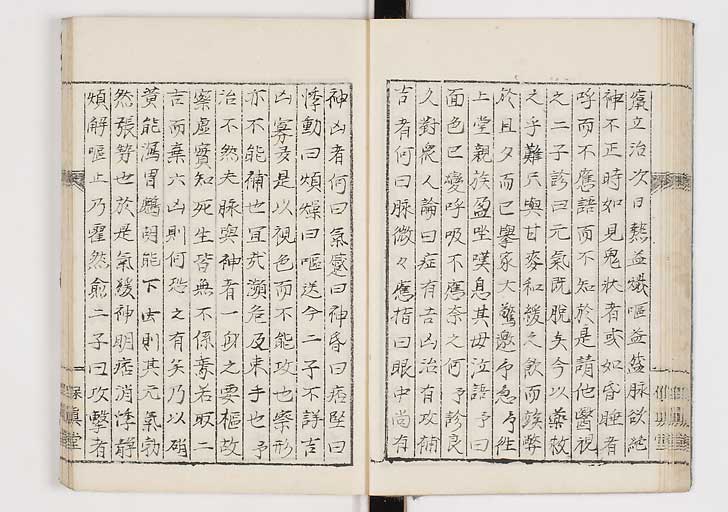 瘼立治次日熱益熾嘔益盛脉欲絶
神不正時如見鬼狀者或如昏睡者
呼而不應語而不知於是請他醫視
之二子診曰元氣既脫矣今以藥救
之乎難只與甘麥和緩之飲而竢斃
於旦夕而已擧家大驚邀予急予往
上堂親族盈坐嘆息其母泣語予曰
面色已變呼吸不應奈之何予診良
久對衆人論曰症有吉凶治有攻補
吉者何曰脉微々應指曰眼中尚有
神凶者何曰氣蹙曰神昏曰痞堅曰
悸動曰煩燥曰嘔逆今二子不詳吉
凶寡多是以視色而不能攻也察形
亦不能補也宜哉瀕危及束手也予
治不然夫脉與神者一身之要樞故
察虛實知死生皆無不係焉若取二
吉而棄六凶則何恐之有矣乃以硝
黄能瀉胃鬱閉能下出則其元氣勃
然張勢也於是氣緩神明痞消悸靜
煩解嘔止乃霍然愈二子曰攻擊者
眞堂